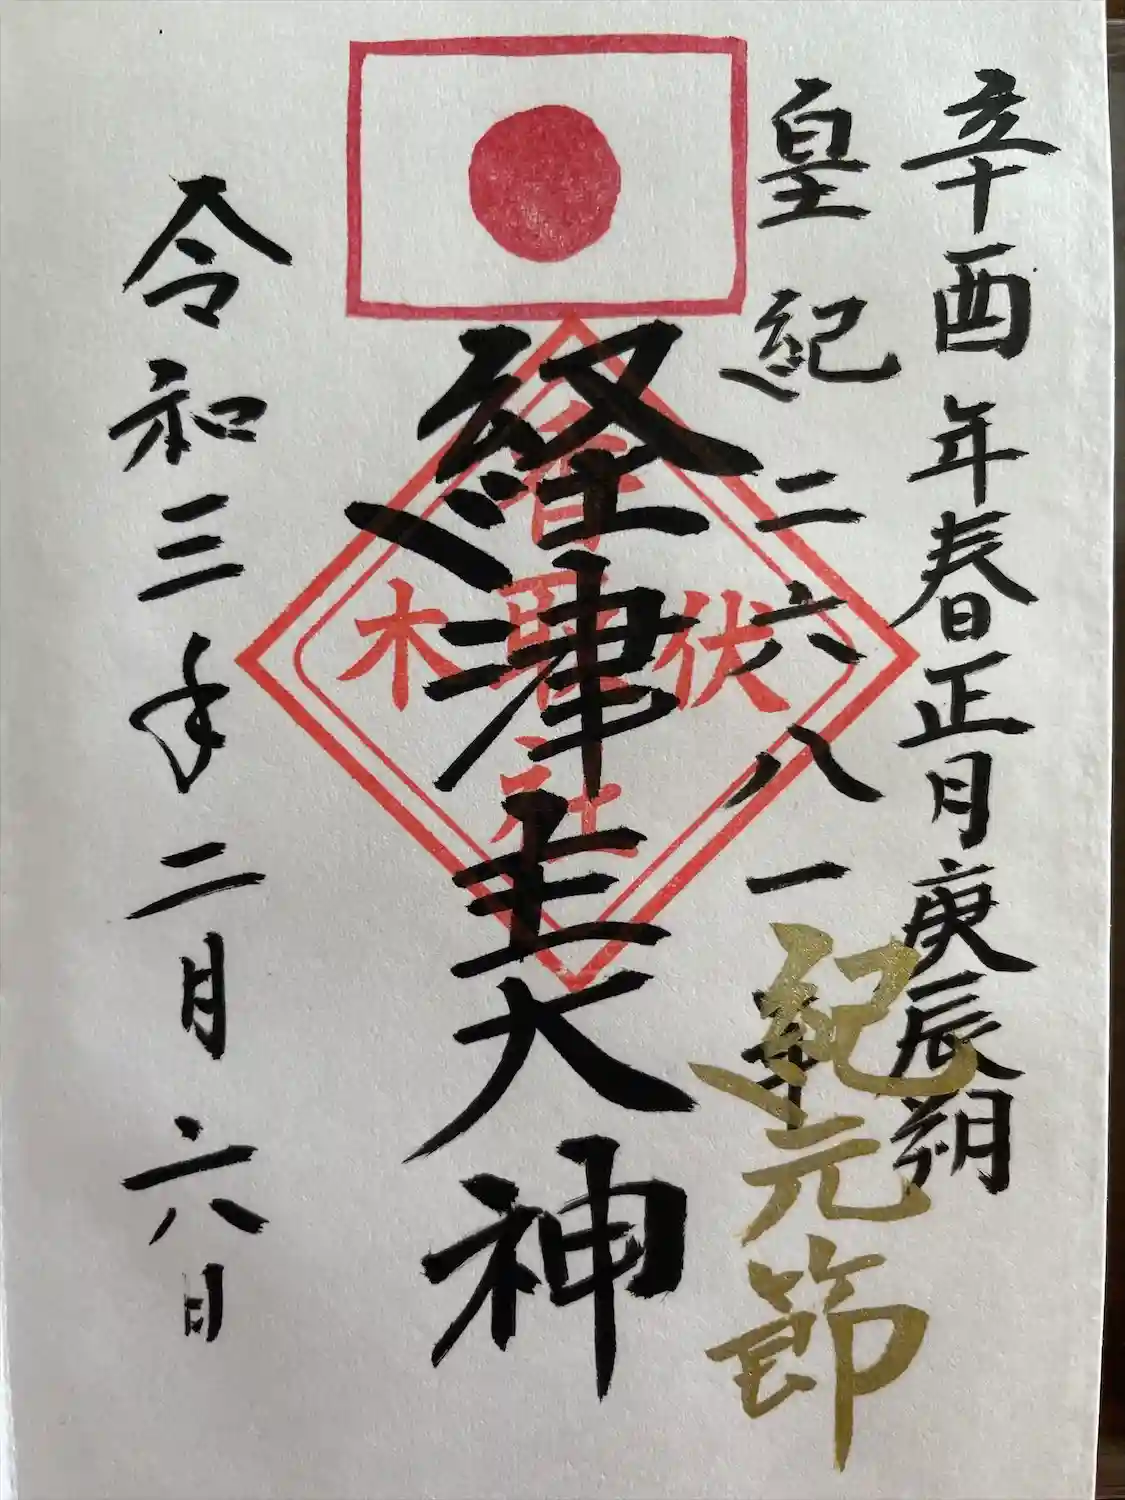 辛酉年春正月庚辰朔
皇紀二六八一年
紀元節
経津主大神
伏木
香取社
令和三年二月六日